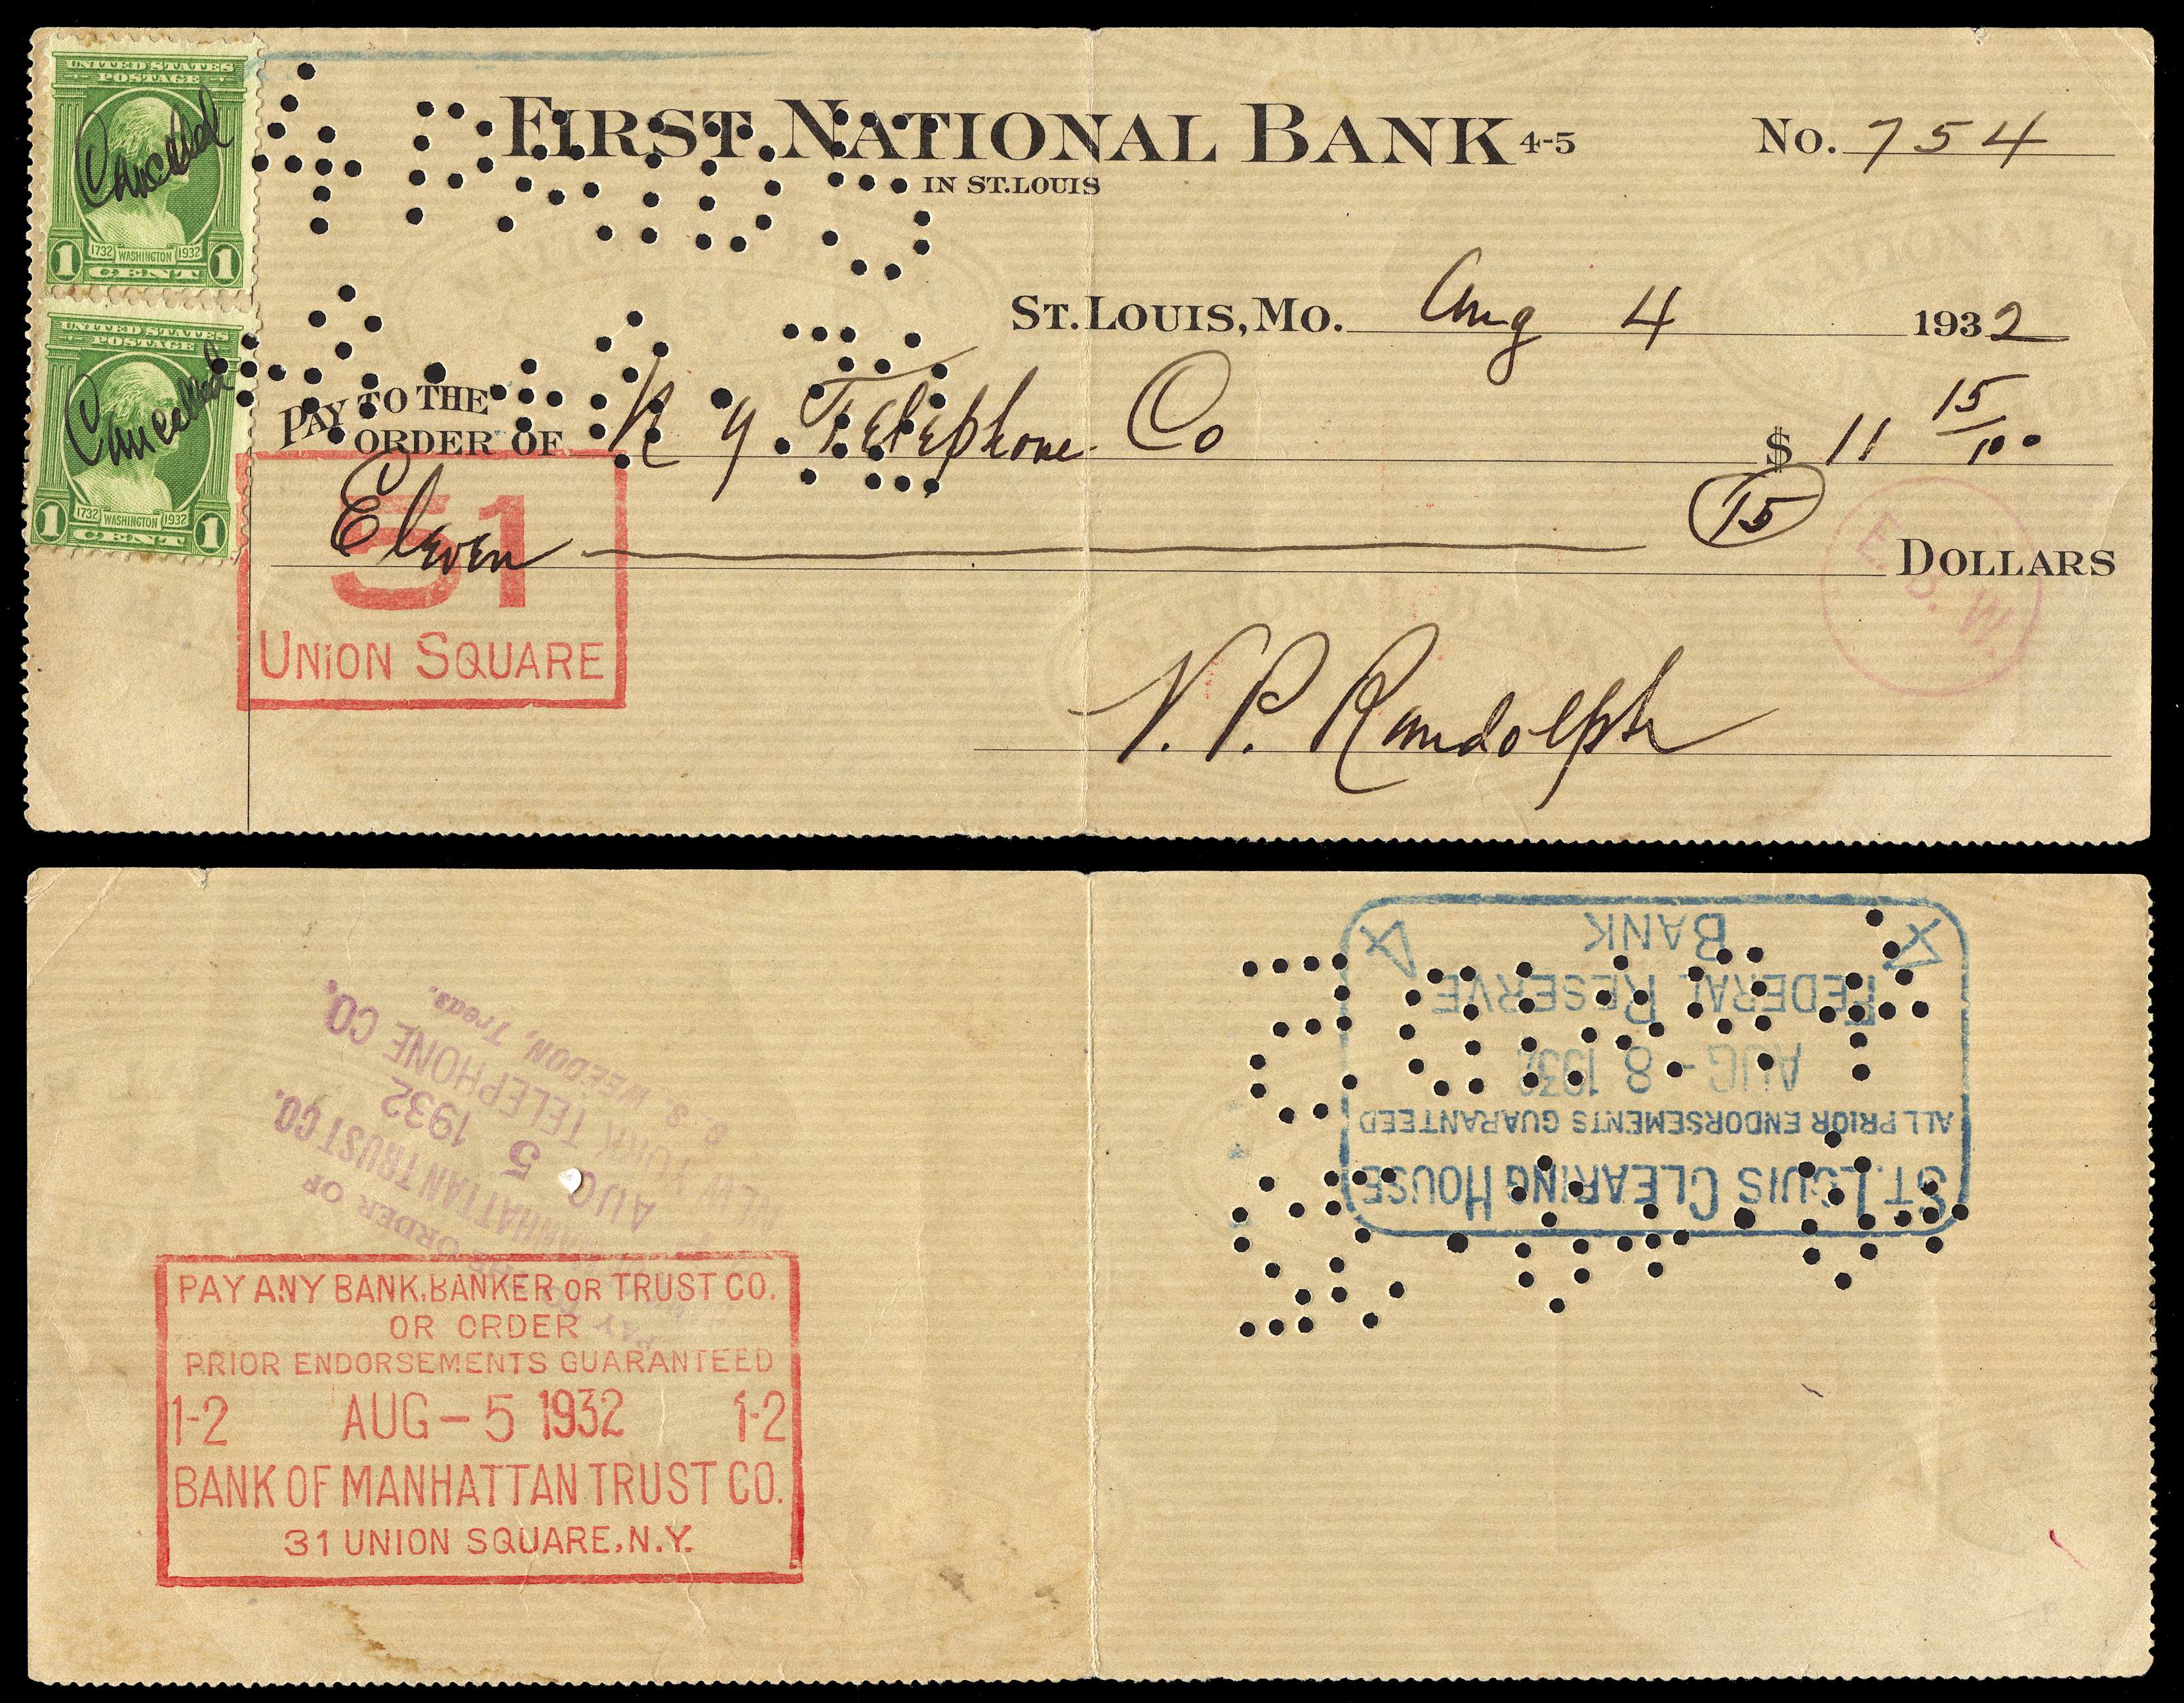 UNITED STATES
POSTAGE
Cancelled
1732 WASHINGTON 1932
1 CENT 1
UNITED STATES
POSTAGE
Cancelled
1732 WASHINGTON 1932
1 CENT 1
FIRST NATIONAL BANK 4-5
IN ST. LOUIS
No. 754
ST. LOUIS, MO. Aug 4 1932
PAY TO THE
ORDER OF N Y. Telephone Co $ 11 15/100
Eleven 15 DOLLARS
51
UNION SQUARE
E. B. W.
V. P. Randolph
PAY
ORDER OF
MANHATTAN TRUST CO.
AUG 5 1932
NEW YORK TELEPHONE CO.
S. WEEDON, Treas.
PAY ANY BANK, BANKER OR TRUST CO.
OR ORDER
PRIOR ENDORSEMENTS GUARANTEED
1-2 AUG-5 1932 1-2
BANK OF MANHATTAN TRUST CO.
31 UNION SQUARE, N.Y.
ST. LOUIS CLEARING HOUSE
ALL PRIOR ENDORSEMENTS GUARANTEED
AUG-8 1932
FEDERAL RESERVE
BANK